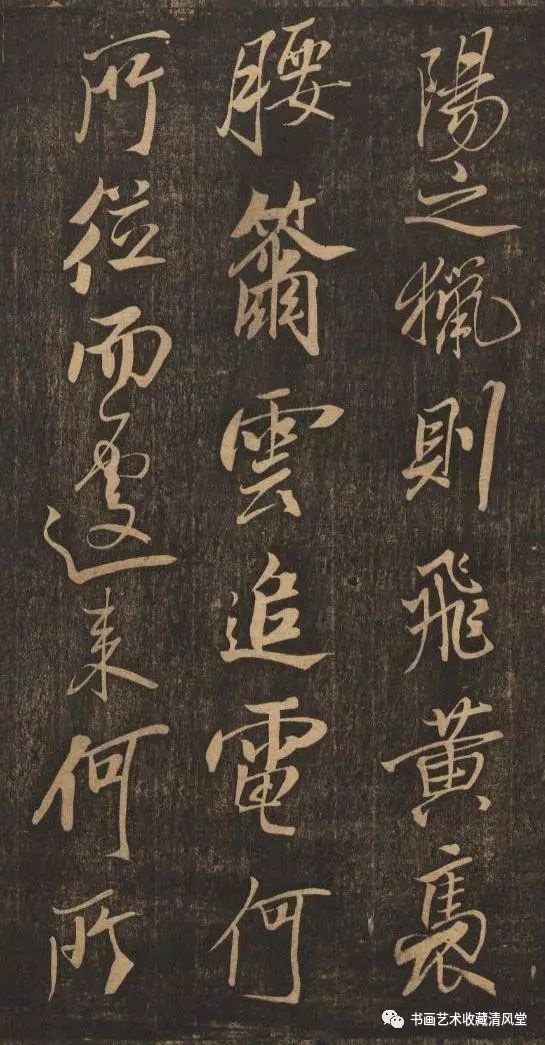 陽之獵則飛黃褭
腰籋雲追電何
所從而遽来何所
书画艺术收藏清风堂